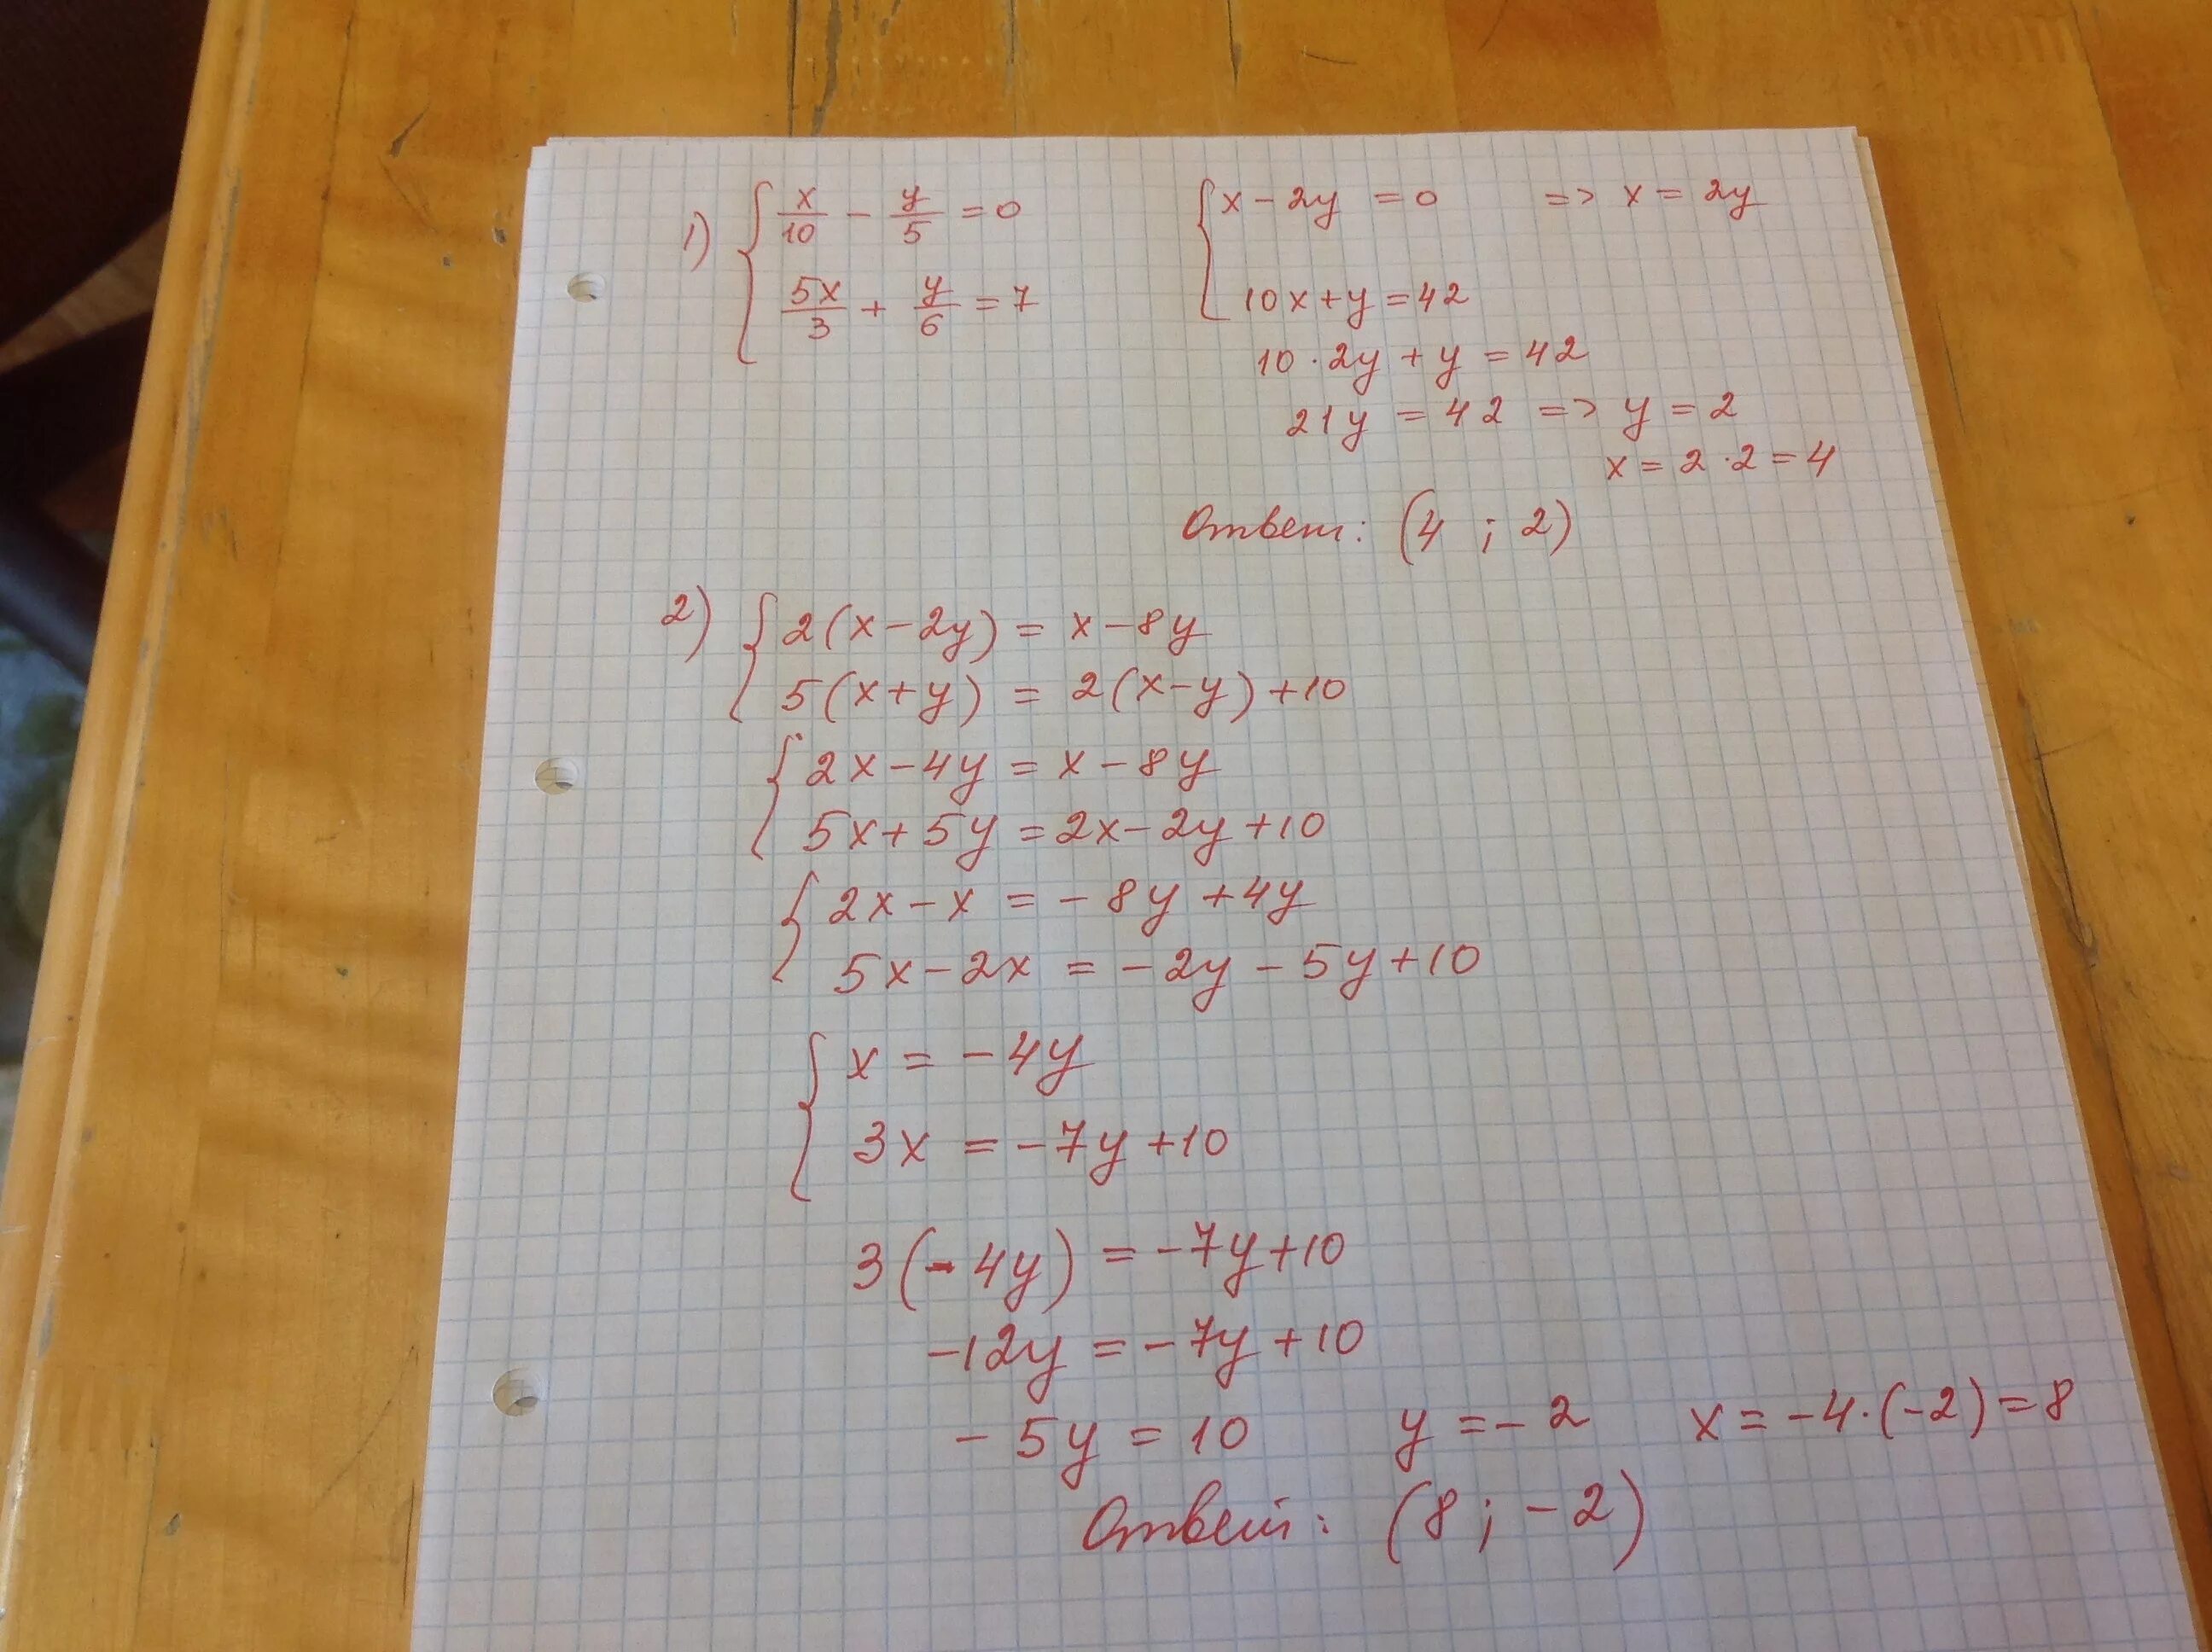 1) { x/10 - y/5 = 0
5x/3 + y/6 = 7
{ x - 2y = 0 => x = 2y
10x + y = 42
10 · 2y + y = 42
21y = 42 => y = 2
x = 2 · 2 = 4
Ответ: (4 ; 2)
2) { 2(x - 2y) = x - 8y
5(x + y) = 2(x - y) + 10
{ 2x - 4y = x - 8y
5x + 5y = 2x - 2y + 10
{ 2x - x = - 8y + 4y
5x - 2x = - 2y - 5y + 10
{ x = - 4y
3x = - 7y + 10
3(- 4y) = - 7y + 10
-12y = - 7y + 10
- 5y = 10 y = - 2 x = -4 · (-2) = 8
Ответ: (8 ; - 2)